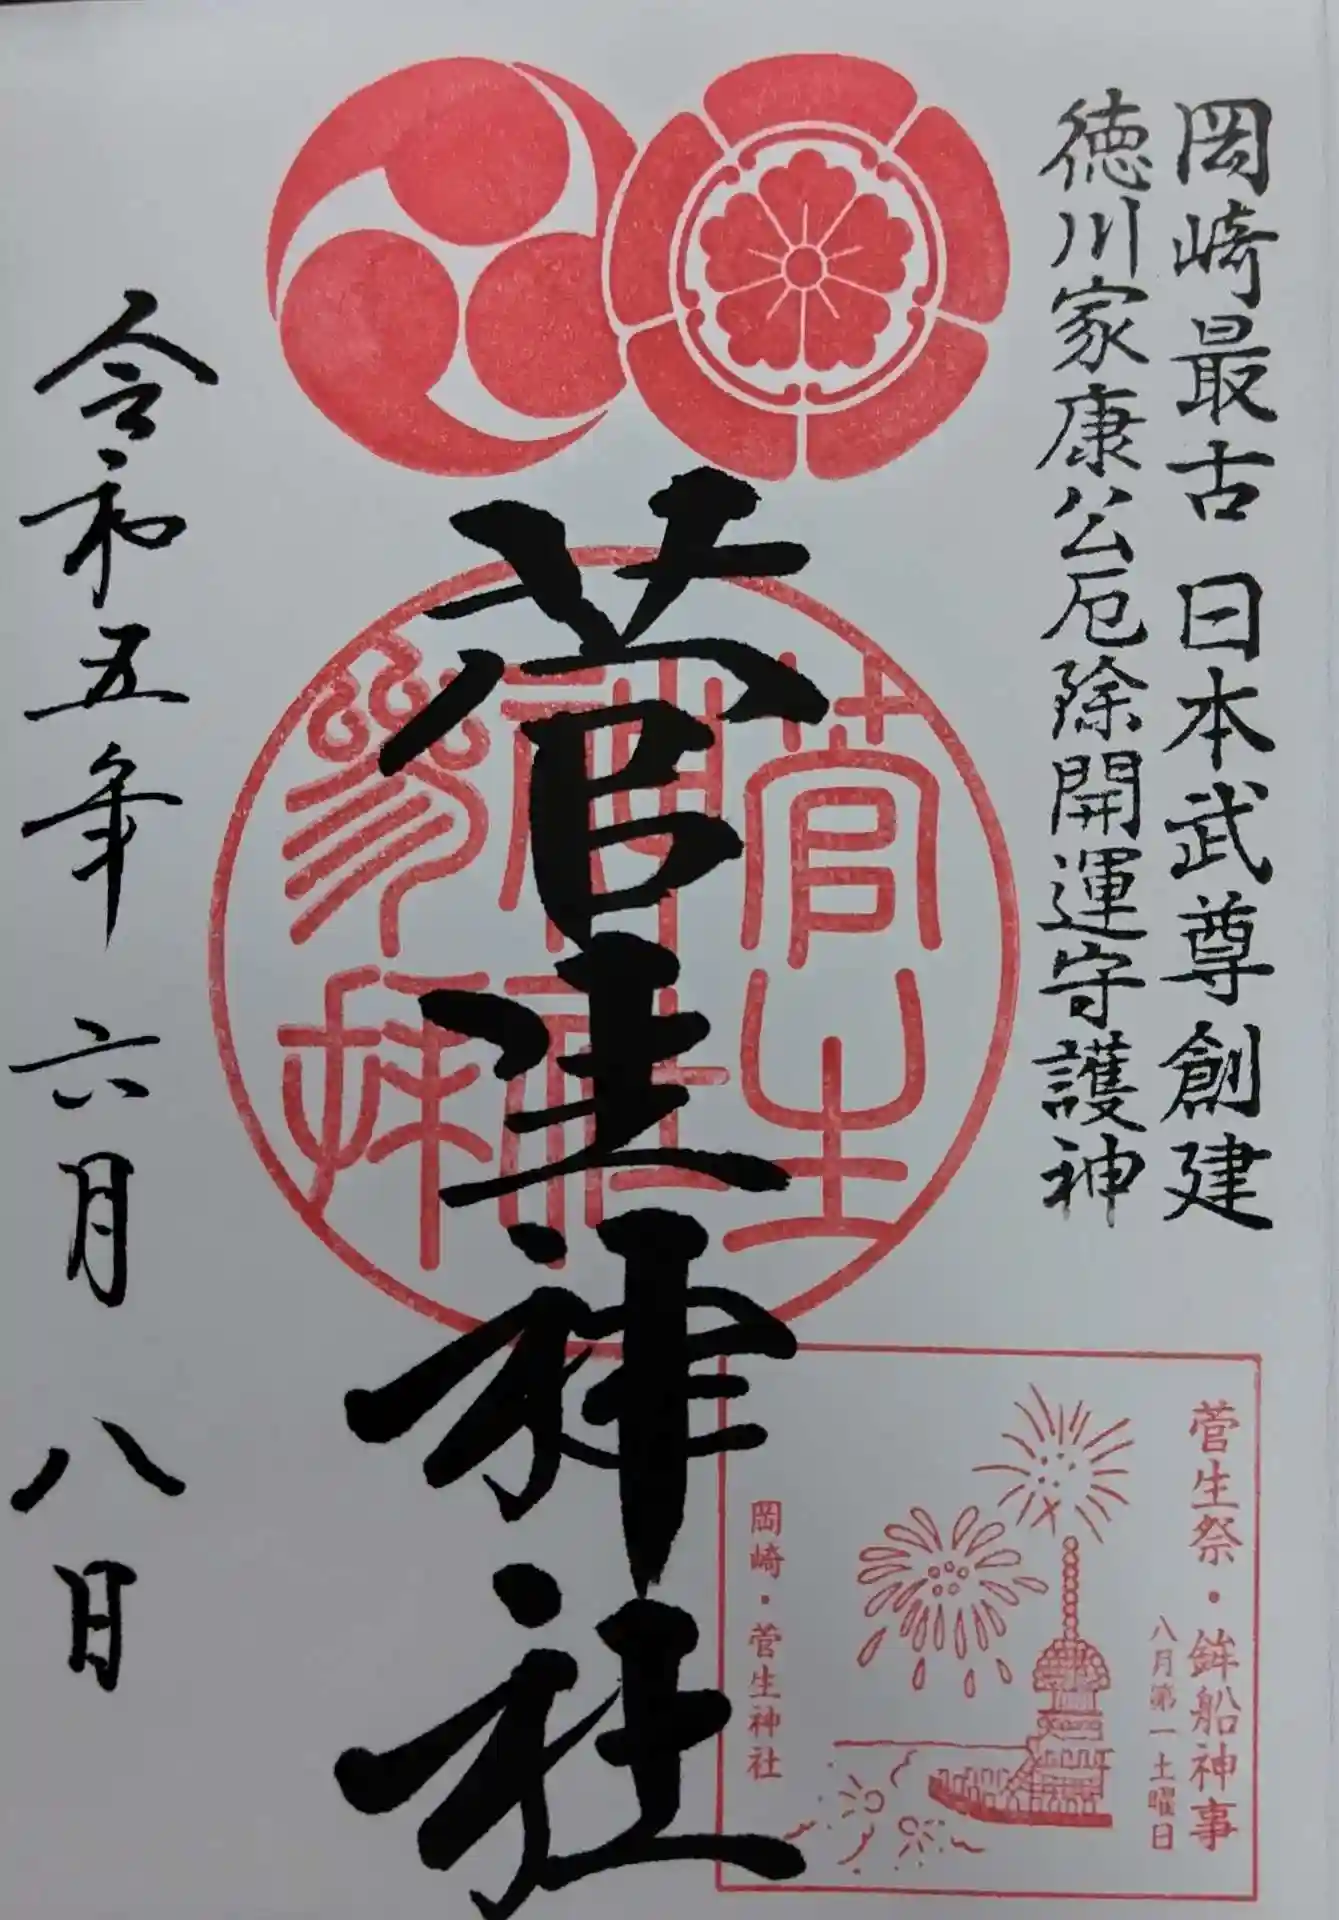 岡崎最古 日本武尊創建
徳川家康公厄除開運守護神
菅生神社
菅生
神社
参拝
菅生祭・鉾船神事
八月第一土曜日
岡崎・菅生神社
令和五年 六月 八日